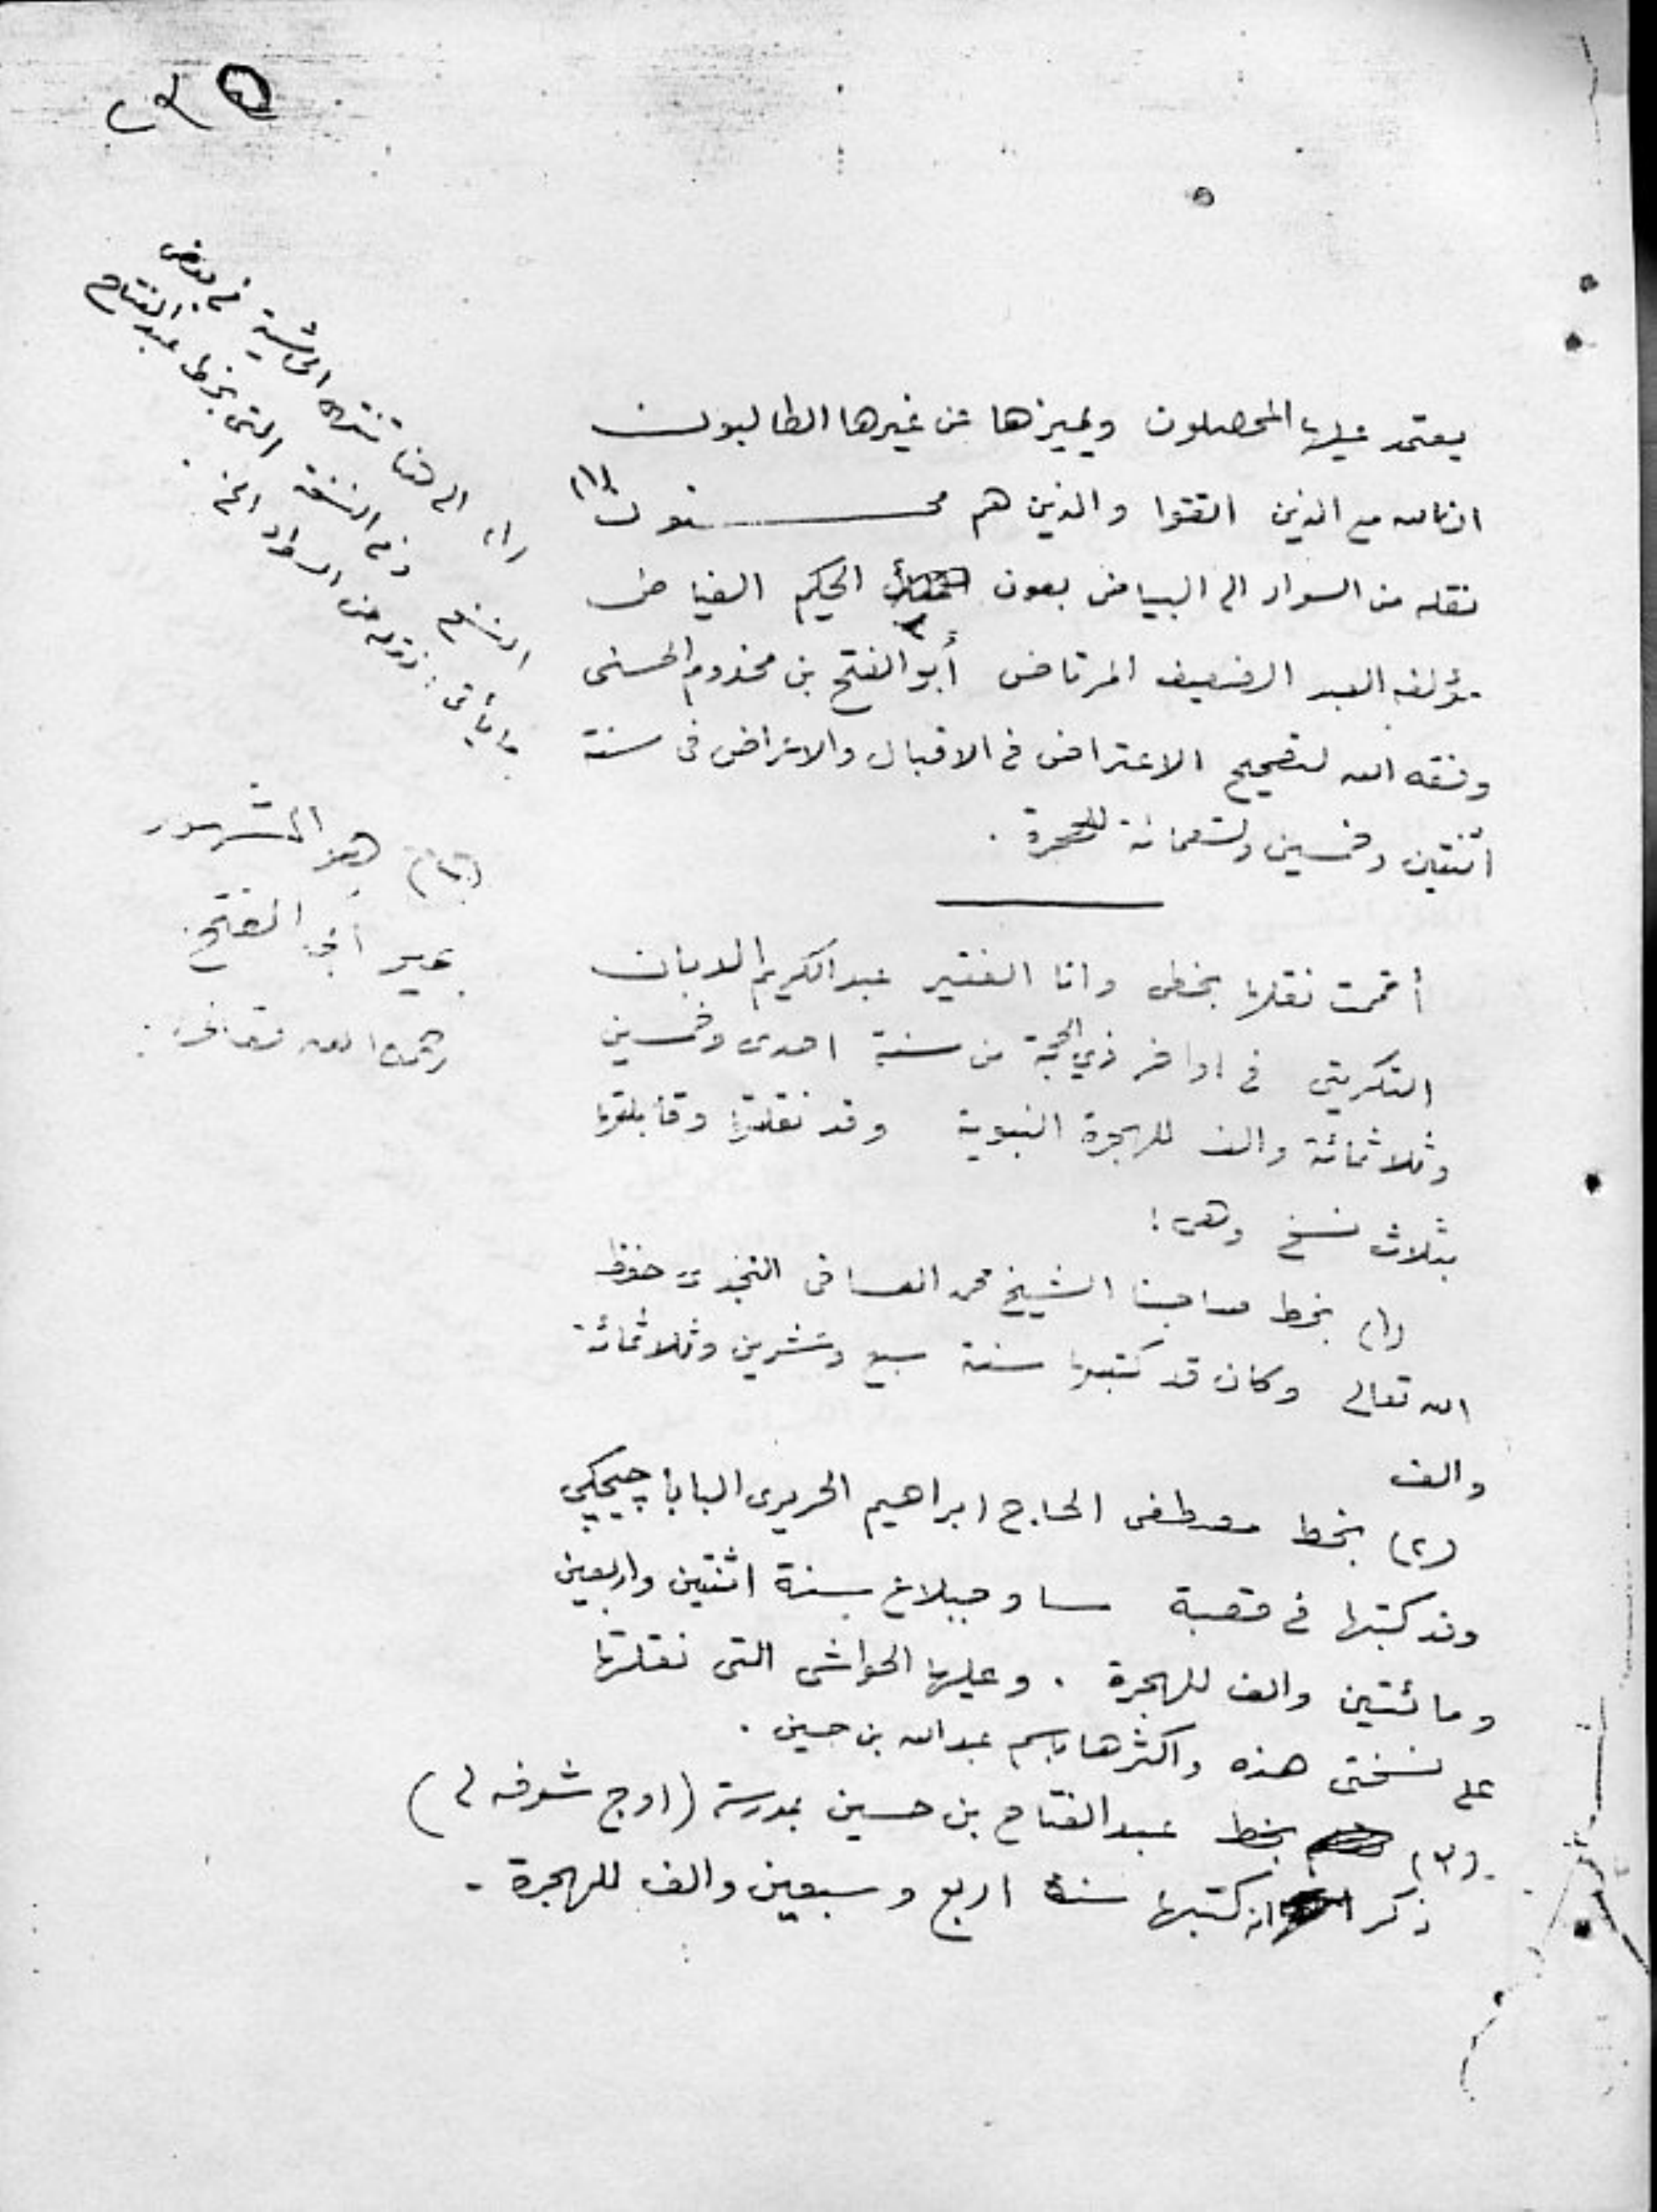 يعتمد عليها المحصلون ويميزها عن غيرها الطالبون
ان الله مع الذين اتقوا والذين هم محسنون (١)
نقله من السواد الى البياض بعون الحكيم الفياض
مؤلفه العبد الضعيف المرتاض أبو الفتح بن مخدوم الحسنى
وفقه الله لتصحيح الاعتراض في الاقبال والاعراض في سنة
اثنتين وخمسين وتسعمائة للهجرة .
أتممت نقلها بخطى وانا الفقير عبد الكريم الدبان
التكريتى في اواخر ذي الحجة من سنة احدى وخمسين
وثلاثمائة والف للهجرة النبوية وقد نقلتها وقابلتها
بثلاث نسخ وهى :
(١) بخط صاحبنا الشيخ محمد العسافى النجدى حفظه
الله تعالى وكان قد كتبها سنة سبع وعشرين وثلاثمائة
والف
(٢) بخط مصطفى الحاج ابراهيم الحريرى البابا چيچكي
وقد كتبها في قصبة ساوجبلاغ سنة اثنتين واربعين
ومائتين والف للهجرة . وعليها الحواشى التى نقلتها
على نسختى هذه واكثرها باسم عبد الله بن حسين .
(٣) بخط عبد الفتاح بن حسين بمدرسة (اوج شرفه لى)
ذكر انه كتبها سنة اربع وسبعين والف للهجرة .
(١) الى هنا تنتهى الحاشية في بعض
النسخ وفي النسخة التى بخط عبد الفتاح
ما يأتى : نقله من السواد الخ .
(٢) هو المشهور
بمير أبى الفتح
رحمه الله تعالى .